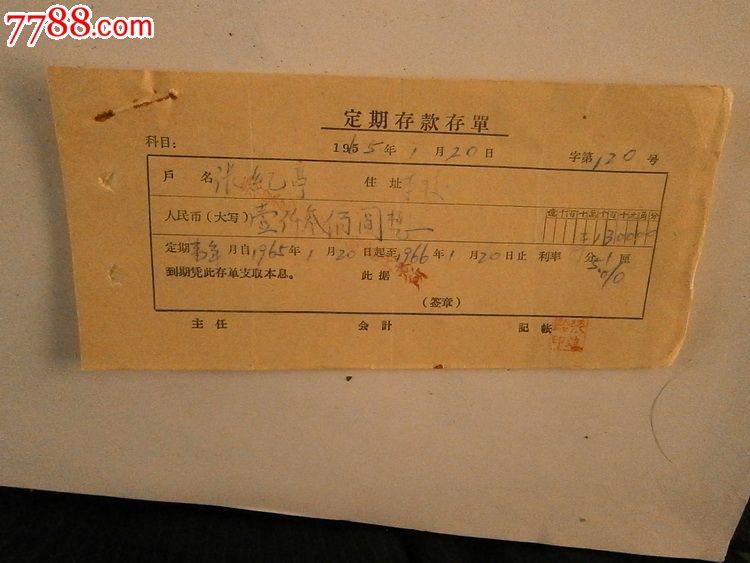 7788.com
定期存款存單
科目： 1965年1月20日 字第120号
戶名 张纪亭 住址 李
人民币（大写）壹仟叁佰圆整 亿千百十万千百十元角分
¥130000
定期壹年月自1965年1月20日起至1966年1月20日止 利率 分 厘
到期凭此存单支取本息。 此据
（签章）
主任 会計 記帐